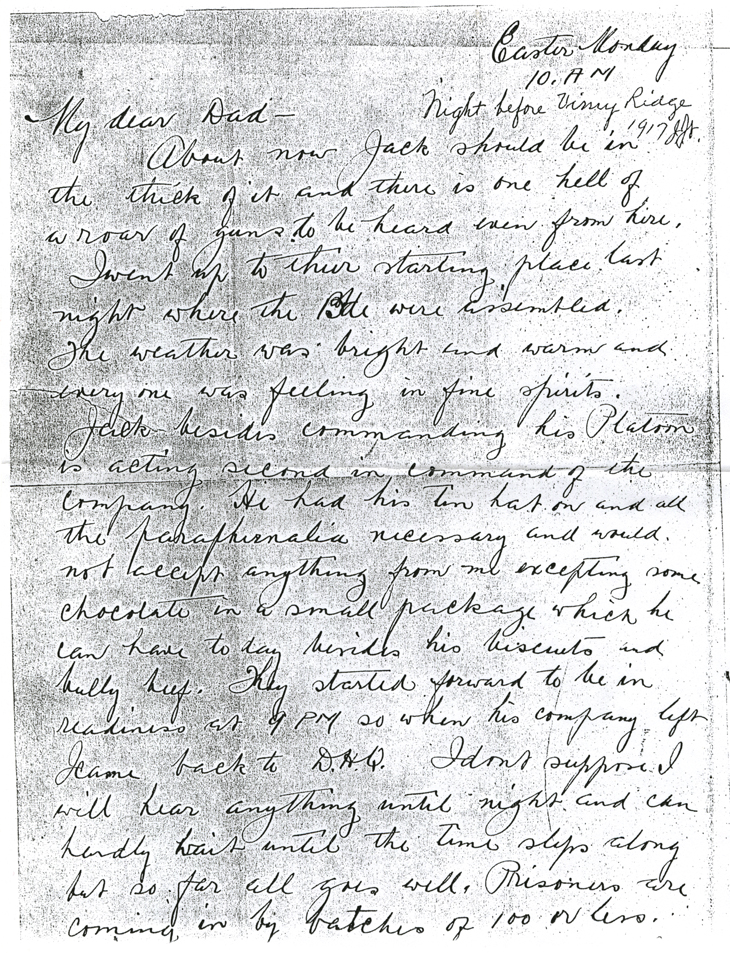 Easter Monday
10. A M
Night before Vimy Ridge
1917
My dear Dad —
About now Jack should be in
the thick of it and there is one hell of
a roar of guns to be heard even from here.
I went up to their starting place last
night where the Bde were assembled.
The weather was bright and warm and
every one was feeling in fine spirits.
Jack besides commanding his Platoon
is acting second in command of the
company. He had his tin hat on and all
the paraphernalia necessary and would
not accept anything from me excepting some
chocolate in a small package which he
can have to day besides his biscuits and
bully beef. They started forward to be in
readiness at 9 PM so when his company left
I came back to D.H.Q. I dont suppose I
will hear anything until night and can
hardly wait until the time slips along
but so far all goes well. Prisoners are
coming in by batches of 100 or less.